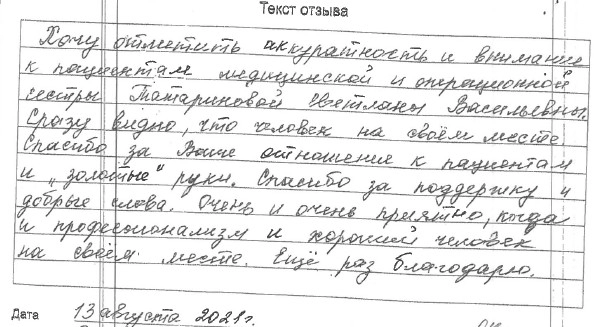 Текст отзыва
Хочу отметить аккуратность и внимание
к пациентам медицинской и операционной
сестры Татариновой Светланы Васильевны.
Сразу видно, что человек на своём месте.
Спасибо за Ваше отношение к пациентам
и „золотые“ руки. Спасибо за поддержку и
добрые слова. Очень и очень приятно, когда
и професионализм и хороший человек
на своём месте. Ещё раз благодарю.
Дата 13 августа 2021г.